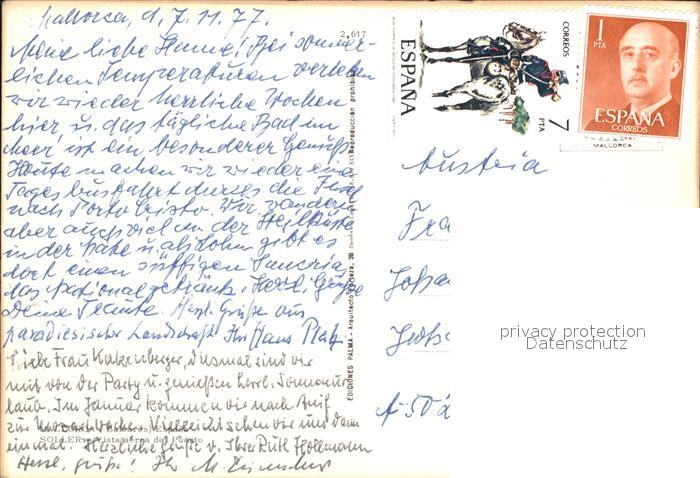 Mallorca, d. 7. 11. 77.
Meine liebe Hanne! Bei sommer-
lichen Temperaturen verleben
wir wieder herrliche Wochen
hier u. das tägliche Bad im
Meer ist ein besonderer Genuß.
Heute machen wir wieder eine
Tagesbusfahrt durch die Insel
nach Porto Cristo. Wir wandern
aber auch viel an der Steilküste
in der Nähe u. als Lohn gibt es
dort einen süffigen Sangria,
das Nationalgetränk. Herzl. Grüße
Deine Herzl. Grüße aus
paradiesischer Landschaft Ihr Hans
Liebe Frau Katzenberger, diesmal sind wir
mit von der Party u. genießen herrl. Sonnen
laub. Im Januar kommen wir nach
zur Vielleicht sehen wir uns dann
einmal. Herzliche Grüße v. Ihrer Ruth
Herzl. Grüße! Ihr M.
SOLLER Vista del Puerto
2.617
EDICIONES PALMA - Arquitecto 20
Reproducción prohibida
ESPAÑA
CORREOS
7 PTA
1 PTA
ESPAÑA
CORREOS
MALLORCA
Austria
Fra
Joha
A-50
privacy protection
Datenschutz